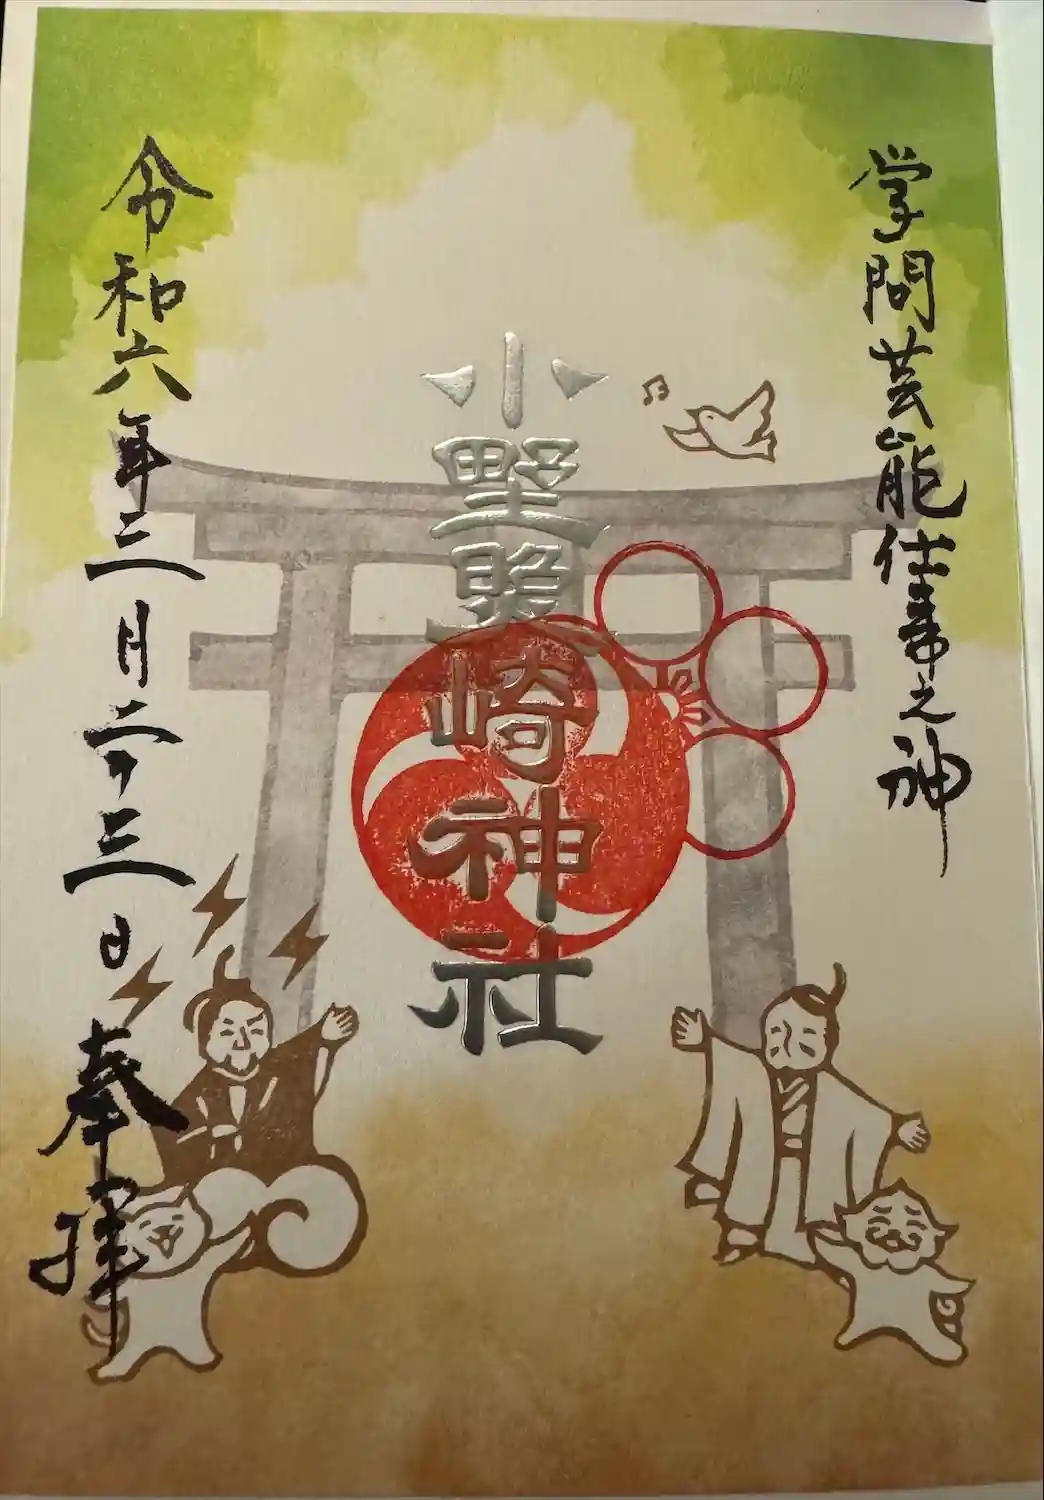 学問芸能仕事之神
小野照崎神社
令和六年二月二十三日
奉拝